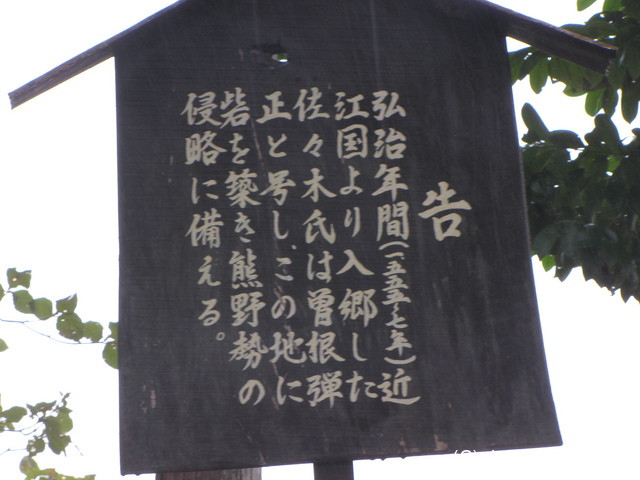 告
弘治年間(一五五五〜七年)近
江国より入郷した
佐々木氏は曽根弾
正と号し、この地に
砦を築き熊野勢の
侵略に備える。